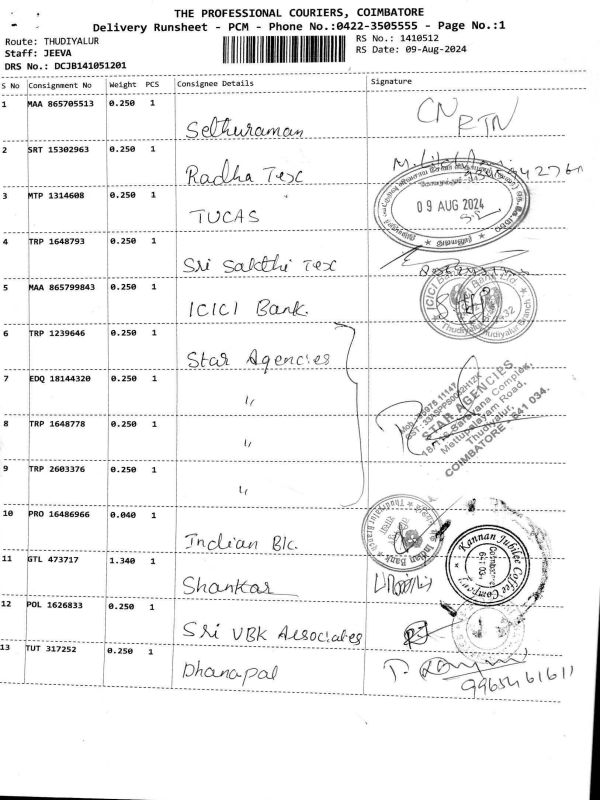 THE PROFESSIONAL COURIERS, COIMBATORE
Delivery Runsheet - PCM - Phone No.:0422-3505555 - Page No.:1
Route: THUDIYALUR
Staff: JEEVA
DRS No.: DCJB141051201
RS No.: 1410512
RS Date: 09-Aug-2024
S No Consignment No Weight PCS Consignee Details Signature
1 MAA 865705513 0.250 1 Sethuraman CN RTN
2 SRT 15302963 0.250 1 Radha Tex
3 MTP 1314608 0.250 1 TUCAS
09 AUG 2024
4 TRP 1648793 0.250 1 Sri Sakthi Tex
5 MAA 865799843 0.250 1 ICICI Bank.
ICICI Bank Ltd.
Thudiyalur Branch
6 TRP 1239646 0.250 1 Star Agencies
7 EDQ 18144320 0.250 1 "
8 TRP 1648778 0.250 1 "
9 TRP 2603376 0.250 1 "
STAR AGENCIES
Saravana Complex,
Mettupalayam Road,
Thudiyalur,
COIMBATORE - 641 034.
10 PRO 16486966 0.040 1 Indian Bk.
Indian Bank
11 GTL 473717 1.340 1 Shankar
Kannan Jubilee Coffee Company
Coimbatore
641 034
12 POL 1626833 0.250 1 Sri VBK Associates
13 TUT 317252 0.250 1 Dhanapal
9965461611